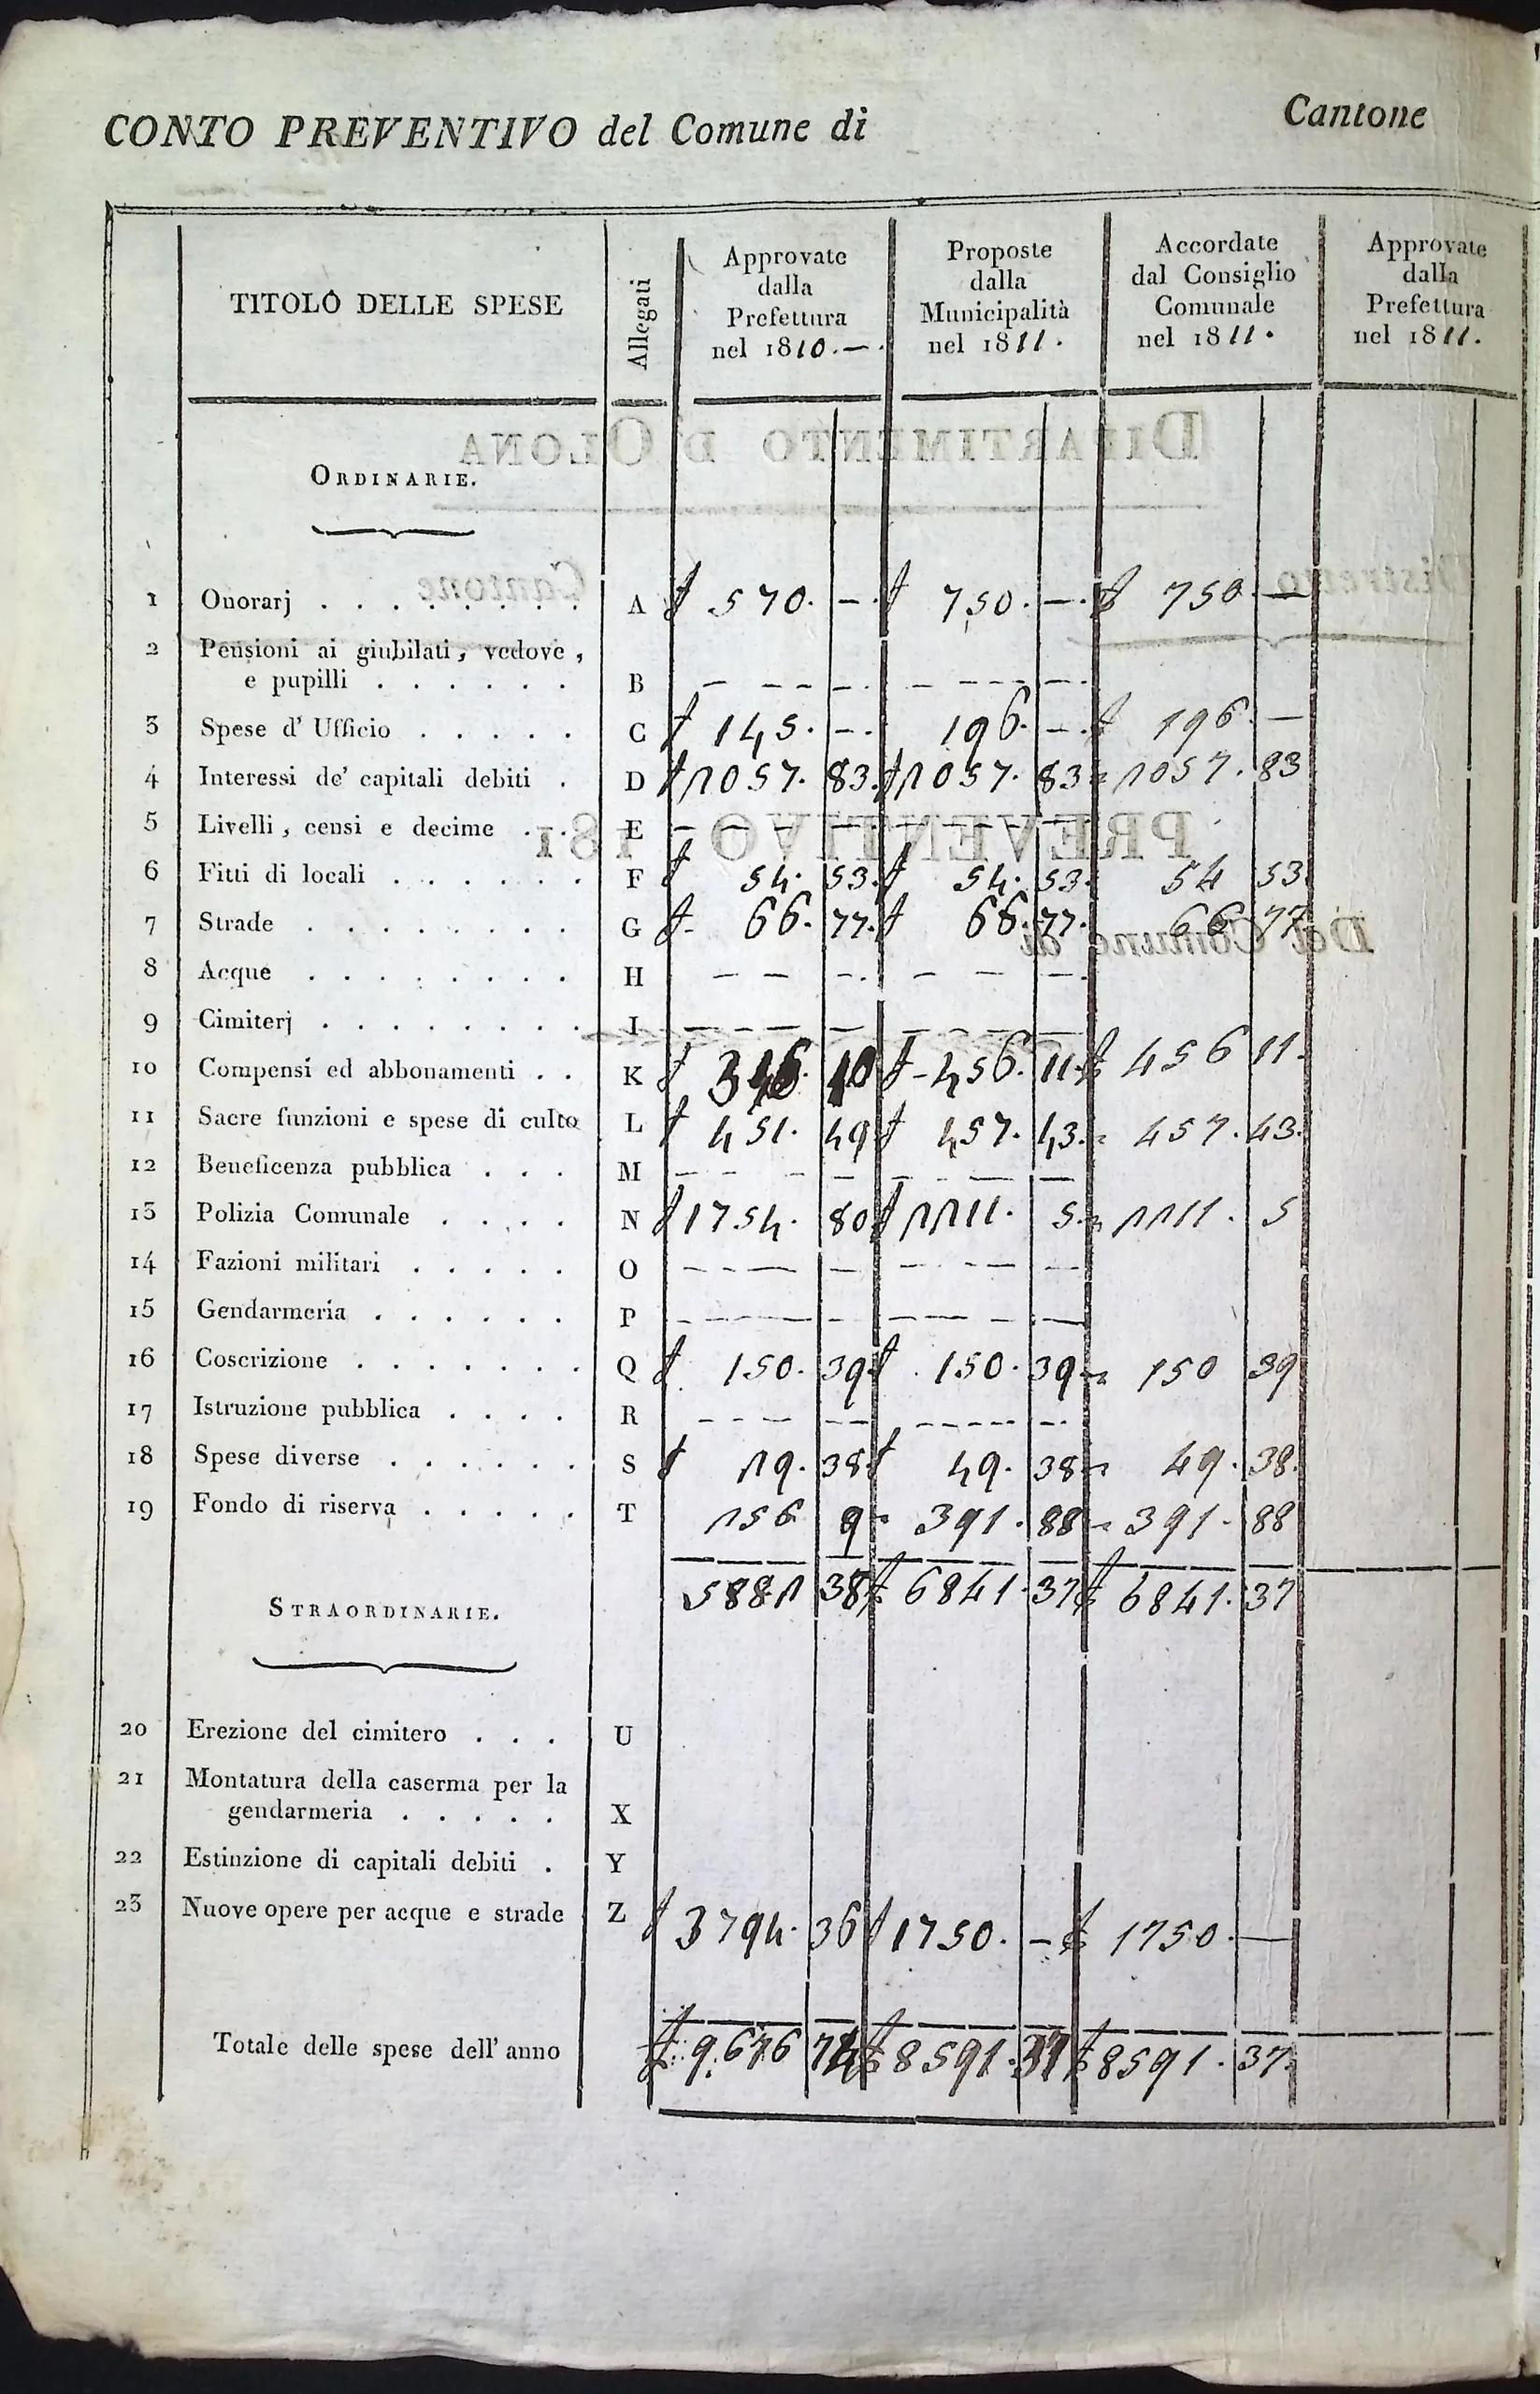 CONTO PREVENTIVO del Comune di Cantone
TITOLO DELLE SPESE
Allegati
Approvate dalla Prefettura nel 1810. —.
Proposte dalla Municipalità nel 1811.
Accordate dal Consiglio Comunale nel 1811.
Approvate dalla Prefettura nel 1811.
ORDINARIE.
1 Onorarj . . . . . . . . A 570. —. 750. —. 750. —
2 Pensioni ai giubilati, vedove,
e pupilli . . . . . . B — — — —. — — — — —
3 Spese d' Ufficio . . . . . C 145. —. 196. —. 196. —
4 Interessi de' capitali debiti . D 1057. 83. 1057. 83 = 1057. 83
5 Livelli, censi e decime . . . E — — — — — — — — —
6 Fitti di locali . . . . . . F 54. 53. 54. 53. 54 53
7 Strade . . . . . . . . G 66. 77. 66. 77. 66 77
8 Acque . . . . . . . . H — — —. — — —.
9 Cimiterj . . . . . . . . I — — — — — — — — —
10 Compensi ed abbonamenti . . K 10 456. 11. 456 11.
11 Sacre funzioni e spese di culto L 451. 49 457. 43. = 457. 43.
12 Beneficenza pubblica . . . M — — — — — — — —
13 Polizia Comunale . . . . N 1754. 80 1111. 5. = 1111. 5
14 Fazioni militari . . . . . O — — — — — — — —
15 Gendarmeria . . . . . . P — — — — — — — —
16 Coscrizione . . . . . . . Q 150. 39 150. 39 = 150 39
17 Istruzione pubblica . . . . R — — — — — — — — —
18 Spese diverse . . . . . . S 19. 38 49. 38 = 49. 38.
19 Fondo di riserva . . . . . T 156 9 = 391. 88 = 391. 88
5881 38 6841. 37 6841. 37
STRAORDINARIE.
20 Erezione del cimitero . . . U
21 Montatura della caserma per la
gendarmeria . . . . . X
22 Estinzione di capitali debiti . Y
23 Nuove opere per acque e strade Z 3794. 36 1750. — 1750. —
Totale delle spese dell' anno 9676 74 8591. 37 8591. 37.